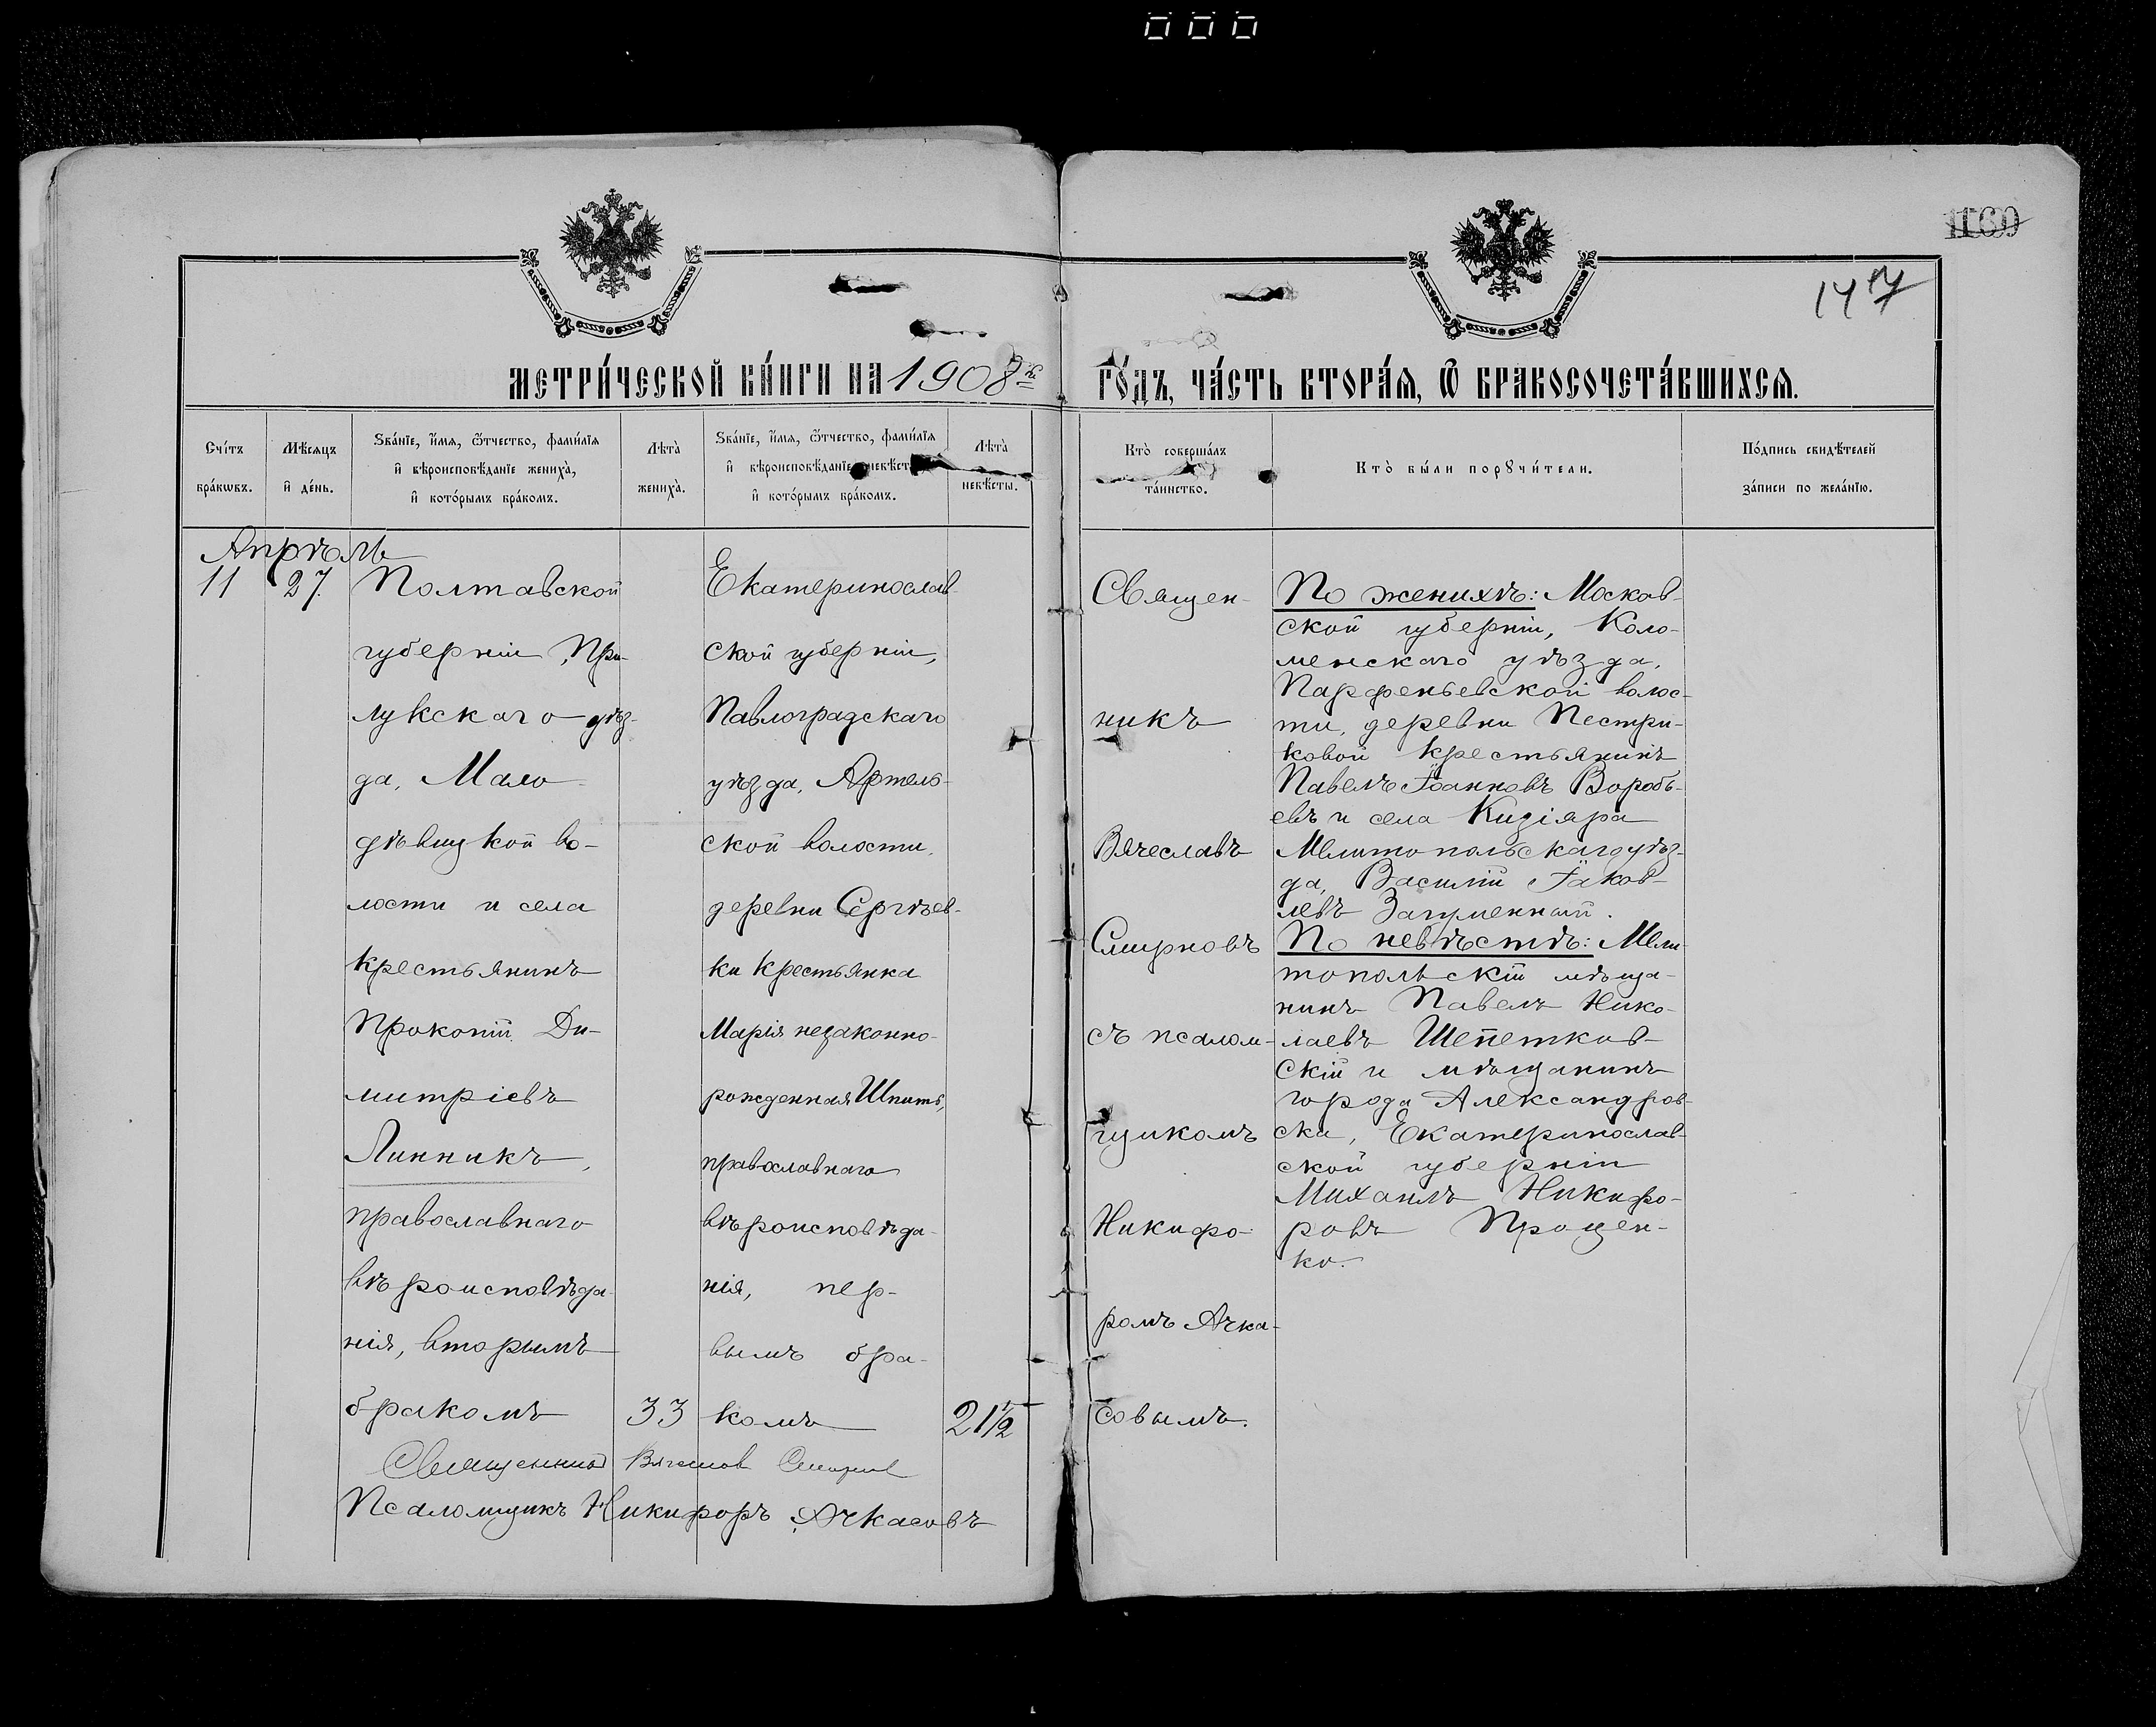 000
1169
147
МЕТРИ́ЧЕСКОЙ КНИ́ГИ НА 1908й ГО́ДЪ, ЧА́СТЬ ВТОРА́Я, Ѿ БРАКОСОЧЕТА́ВШИХСЯ.
Сче́тъ бра́кѡвъ.
Мѣ́сяцъ и де́нь.
Ѕва́нїе, и́мя, ѻ́тчество, фами́лїя и вѣроисповѣ́данїе жениха̀, и кото́рымъ бра́комъ.
Лѣта̀ жениха̀.
Ѕва́нїе, и́мя, ѻ́тчество, фами́лїя и вѣроисповѣ́данїе невѣ́сты, и кото́рымъ бра́комъ.
Лѣта̀ невѣ́сты.
Кто̀ соверша́лъ та́инство.
Кто̀ бы́ли порꙋчи́тели.
По́дпись свидѣ́телей за́писи по жела́нїю.
Апрѣль
11
27.
Полтавской
губерніи, При-
лукскаго уѣз-
да, Мало-
дѣвицкой во-
лости и села
крестьянинъ
Прокопій Ди-
митріевъ
Линникъ,
православнаго
вѣроисповѣда-
нія, вторымъ
бракомъ
33
Екатеринослав-
ской губерніи,
Павлоградскаго
уѣзда, Артель-
ской волости,
деревни Сергѣев-
ки крестьянка
Марія незаконно-
рожденная Шпить,
православнаго
вѣроисповѣда-
нія, пер-
вымъ бра-
комъ
21½
Священник Вячеслав Смирнов
Псаломщикъ Никифоръ Ачкасовъ
Священ-
никъ
Вячеславъ
Смирновъ
съ псалом-
щикомъ
Никифо-
ромъ Ачка-
совымъ.
По женихѣ: Москов-
ской губерніи, Коло-
менскаго уѣзда,
Парфеньевской волос-
ти, деревни Пестри-
ковой крестьянинъ
Павелъ Іоанновъ Воробь-
евъ и села Кизіяра
Мелитопольскаго уѣз-
да, Василій Іаков-
левъ Загуменный.
По невѣстѣ: Мели-
топольскій мѣща-
нинъ Павелъ Нико-
лаевъ Шепетков-
скій и мѣщанинъ
города Александров-
ска, Екатеринослав-
ской губерніи
Михаилъ Никифо-
ровъ Прощен-
ко.